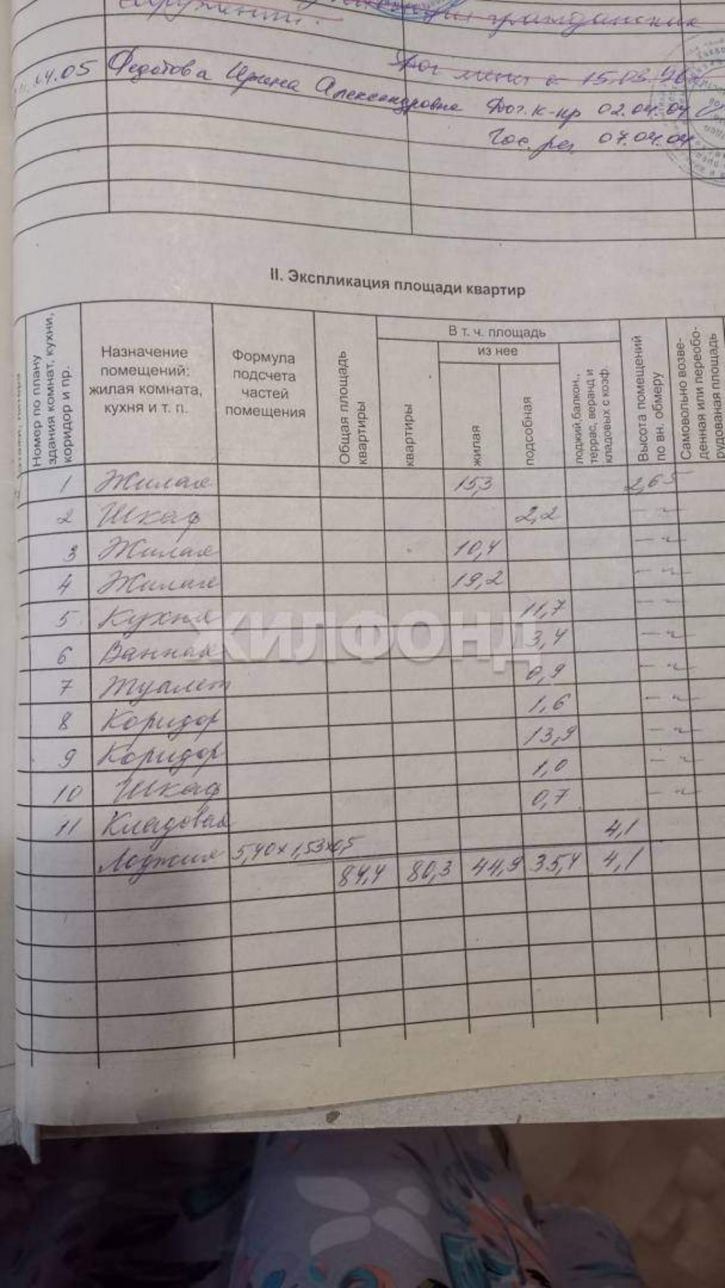 сооружений.
гражданских
04.05 Федотова Ирина Александровна
Дог. мена
Дог. к-пр 02.04.04
Гос. рег 07.04.04
II. Экспликация площади квартир
Номер по плану здания комнат, кухни, коридор и пр.
Назначение помещений: жилая комната, кухня и т. п.
Формула подсчета частей помещения
Общая площадь квартиры
В т. ч. площадь
квартиры
из нее
жилая
подсобная
лоджий, балкон., террас, веранд и кладовых с коэф.
Высота помещений по вн. обмеру
Самовольно возведенная или переоборудованая площадь
1 Жилая 15,3 2,65
2 Шкаф 2,2 –"–
3 Жилая 10,4 –"–
4 Жилая 19,2 –"–
5 Кухня 11,7 –"–
6 Ванная 3,4 –"–
7 Туалет 0,9 –"–
8 Коридор 1,6 –"–
9 Коридор 13,9 –"–
10 Шкаф 1,0 –"–
11 Кладовая 0,7 –"–
Лоджия 5,40×1,53×0,5 4,1
84,4 80,3 44,9 35,4 4,1
ЖИЛФОНД